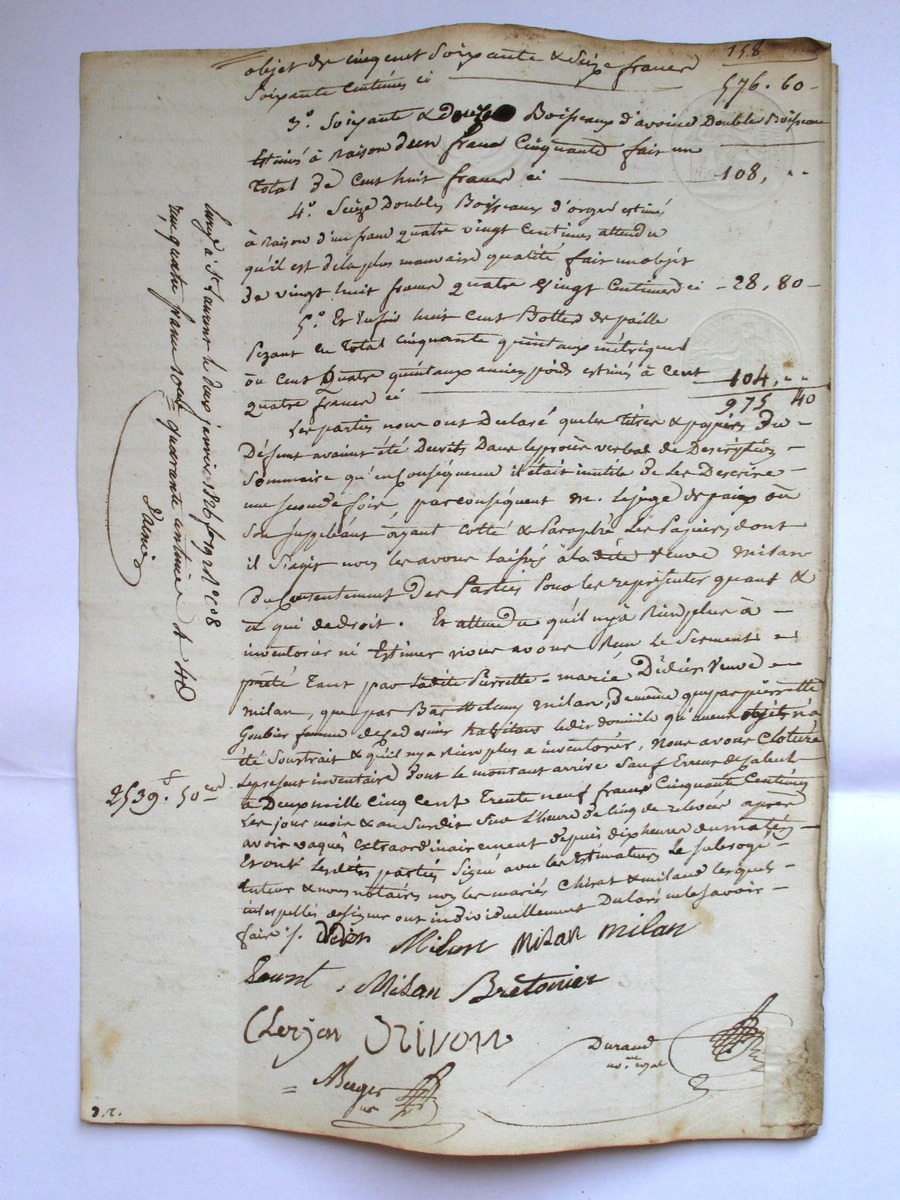 158
objet de cinq cent soixante & seize francs
soixante centimes ci 576. 60
3° Soixante & douze Boisseaux d'avoine Doubles Boisseau
Estimés à raison d'un franc Cinquante fait un
Total de Cent huit francs ci 108, "
4° Seize Doubles Boisseaux d'orge estimés
à raison d'un franc quatre vingt Centimes attendu
qu'il est de la plus mauvaise qualité fait un objet
De vingt huit francs quatre vingt Centimes ci 28, 80
5° Et Enfin huit cent Bottes de paille
pezant en Total Cinquante quintaux métriques
ou Cent Quatre quintaux anciens poids estimés à Cent
quatre francs ci 104, "
975 40
Les parties nous ont Déclaré que les titres & papiers du
Défunt avaient été Décrits Dans le procès verbal de Description
Sommaire qu'en Conséquence il était inutile de les Descrire
une seconde fois, par conséquent M. le juge de paix ou
son suppléant ayant côtté & Paraphé Les Papiers dont
il s'agit nous les avons laissés à la dite veuve Milan
Du Consentement Des Parties Pour les représenter quand &
à qui de droit. Et attendu qu'il n'y a Rien plus à
inventorier ni Estimer nous avons Reçu le Serment
prêté Tant par ladite Pierrette marie Didier Veuve
Milan, que par Barthelemy milan, De même que par pierrette
Goubier femme habitans ledit domicile qu'aucun objet n'a
été Soustrait & qu'il n'y a Rien plus à inventorier, Nous avons Cloturé
Le present inventaire Dont le montant arrive Sauf Erreur de Calcul
2539 f. 50 ces
à Deux mille cinq cent Trente neuf francs Cinquante Centimes
Les jour mois & an Susdit Sur L'heure de Cinq de relevée après
avoir vaqué Extraordinairement depuis dix heures du matin
Et ont Lesdites parties Signé avec les Estimateurs Le subrogé
tuteur & nous notaires non les mariés Chirat & milan lesquels
interpellés de signer ont individuellement Déclaré ne le savoir
faire /. Didier Milan Milan milan
Milan Bretonier
Clerjon Orivon
Durand
no.re royal
Meyer
nre
J.C.
Enregé à St Laurent le douze janvier 1826 fo 19 Ro C 8
reçu quatre francs quarante centimes